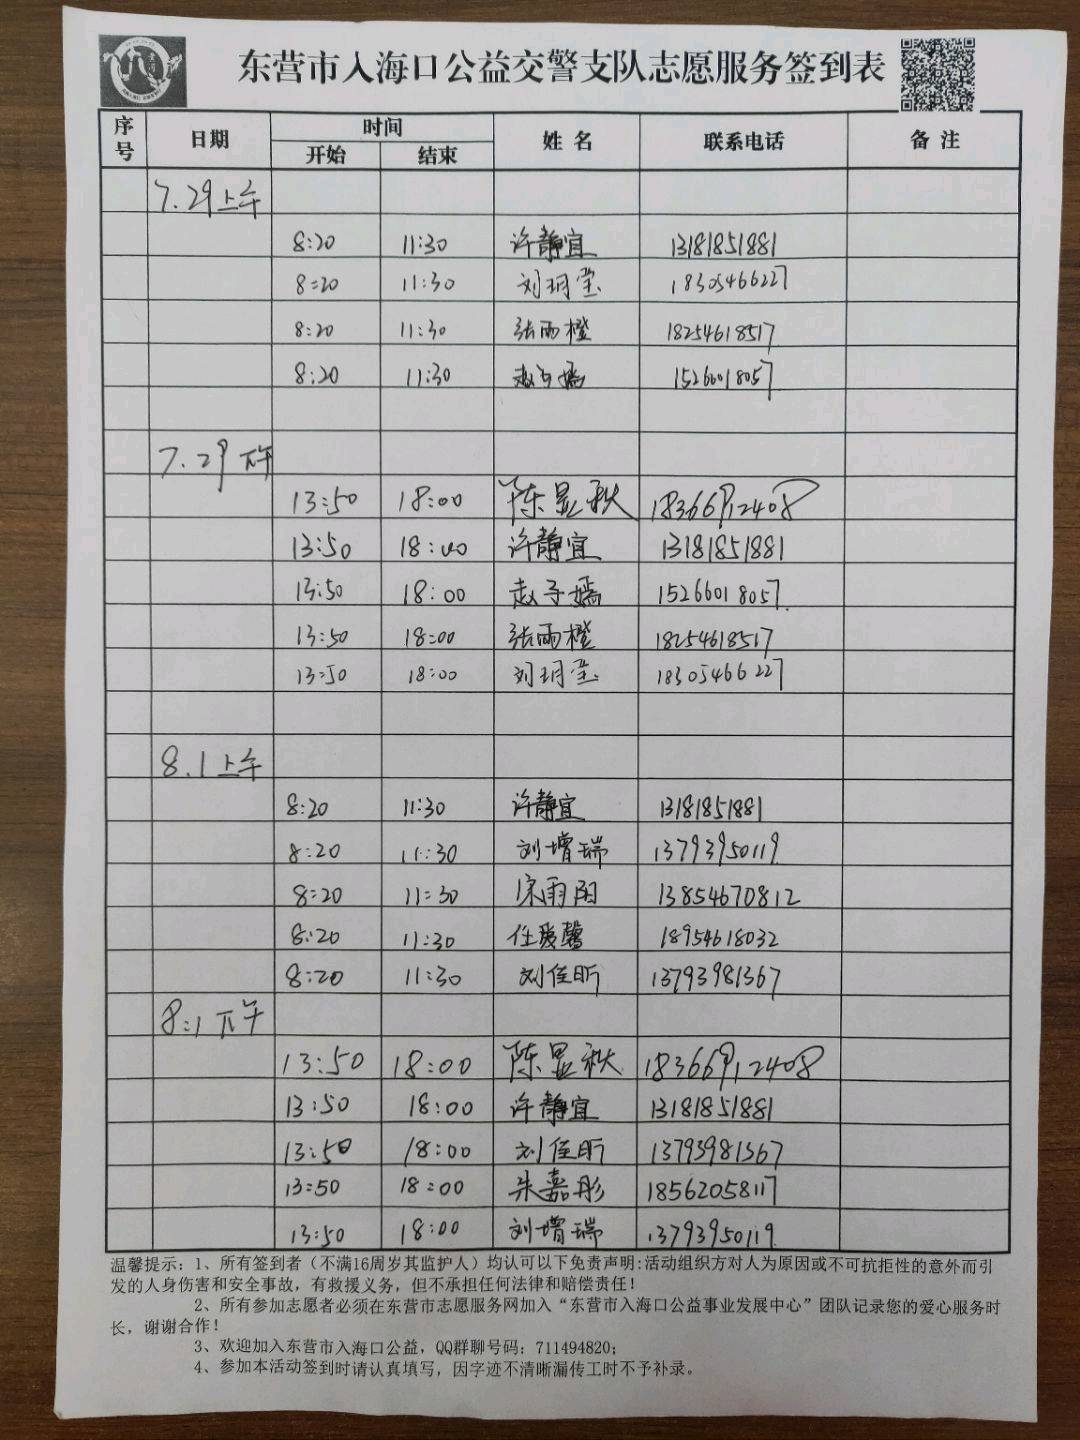 东营市入海口公益交警支队志愿服务签到表
序号 日期 时间 姓名 联系电话 备注
开始 结束
7.29上午
8:20 11:30 许静宜 13181851881
8:20 11:30 刘玥莹 18305466227
8:20 11:30 张雨橙 18254618517
8:20 11:30 赵子嫣 15266018057
7.29下午
13:50 18:00 陈显秋 18366912408
13:50 18:00 许静宜 13181851881
13:50 18:00 赵子嫣 15266018057
13:50 18:00 张雨橙 18254618517
13:50 18:00 刘玥莹 18305466227
8.1上午
8:20 11:30 许静宜 13181851881
8:20 11:30 刘增瑞 13793950119
8:20 11:30 宋雨阳 13854670812
8:20 11:30 任爱馨 18954618032
8:20 11:30 刘佳昕 13793981367
8:1下午
13:50 18:00 陈显秋 18366912408
13:50 18:00 许静宜 13181851881
13:50 18:00 刘佳昕 13793981367
13:50 18:00 朱嘉彤 18562058117
13:50 18:00 刘增瑞 13793950119
温馨提示:1、所有签到者(不满16周岁其监护人)均认可以下免责声明:活动组织方对人为原因或不可抗拒性的意外而引
发的人身伤害和安全事故，有救援义务，但不承担任何法律和赔偿责任！
2、所有参加志愿者必须在东营市志愿服务网加入“东营市入海口公益事业发展中心”团队记录您的爱心服务时
长，谢谢合作！
3、欢迎加入东营市入海口公益，QQ群聊号码：711494820；
4、参加本活动签到时请认真填写，因字迹不清晰漏传工时不予补录。